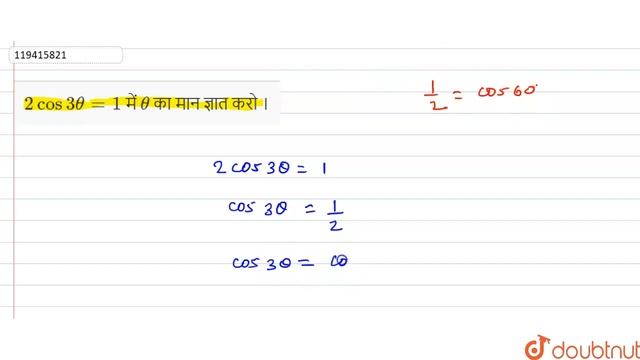 119415821
2 cos 3θ = 1 में θ का मान ज्ञात करो ।
1/2 = cos 60°
2 cos 3θ = 1
cos 3θ = 1/2
cos 3θ = co
doubtnut